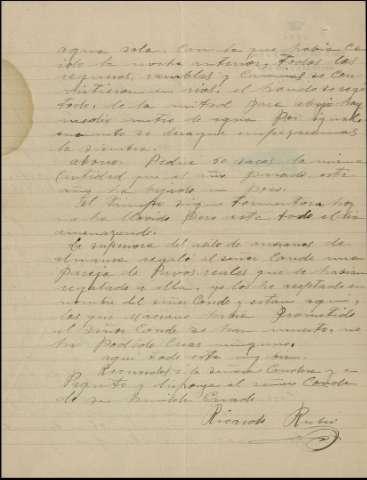 agua sola. Con la que había ca
ido la noche anterior, todas las
regueras, ramblas y caminos se con
virtieron en rios, el bancal se regó
todo, de la mitad para abajo hay
medio metro de agua. Por igual
cuanto se desague empezaremos
la siembra.
abono Pedro se saca la misma
cantidad que el año pasado este
muy ha bajado un poco.
El tiempo sigue tormentoso hoy
no ha llovido pero esta todo el dia
amenazando.
La superiora del asilo de ancianos de
almansa regaló al señor Conde una
pareja de Pavos reales que le habian
regalado a ella, yo los he aceptado en
nombre del señor Conde y estan aqui,
los que Mariano había prometido
al señor Conde se han muerto, no
ha podido criar ninguno.
aqui todo esta muy bien.
Recuerdos a la señora Condesa y
Pepito y disponga el señor Conde
de su humilde Criado
Ricardo Rubio